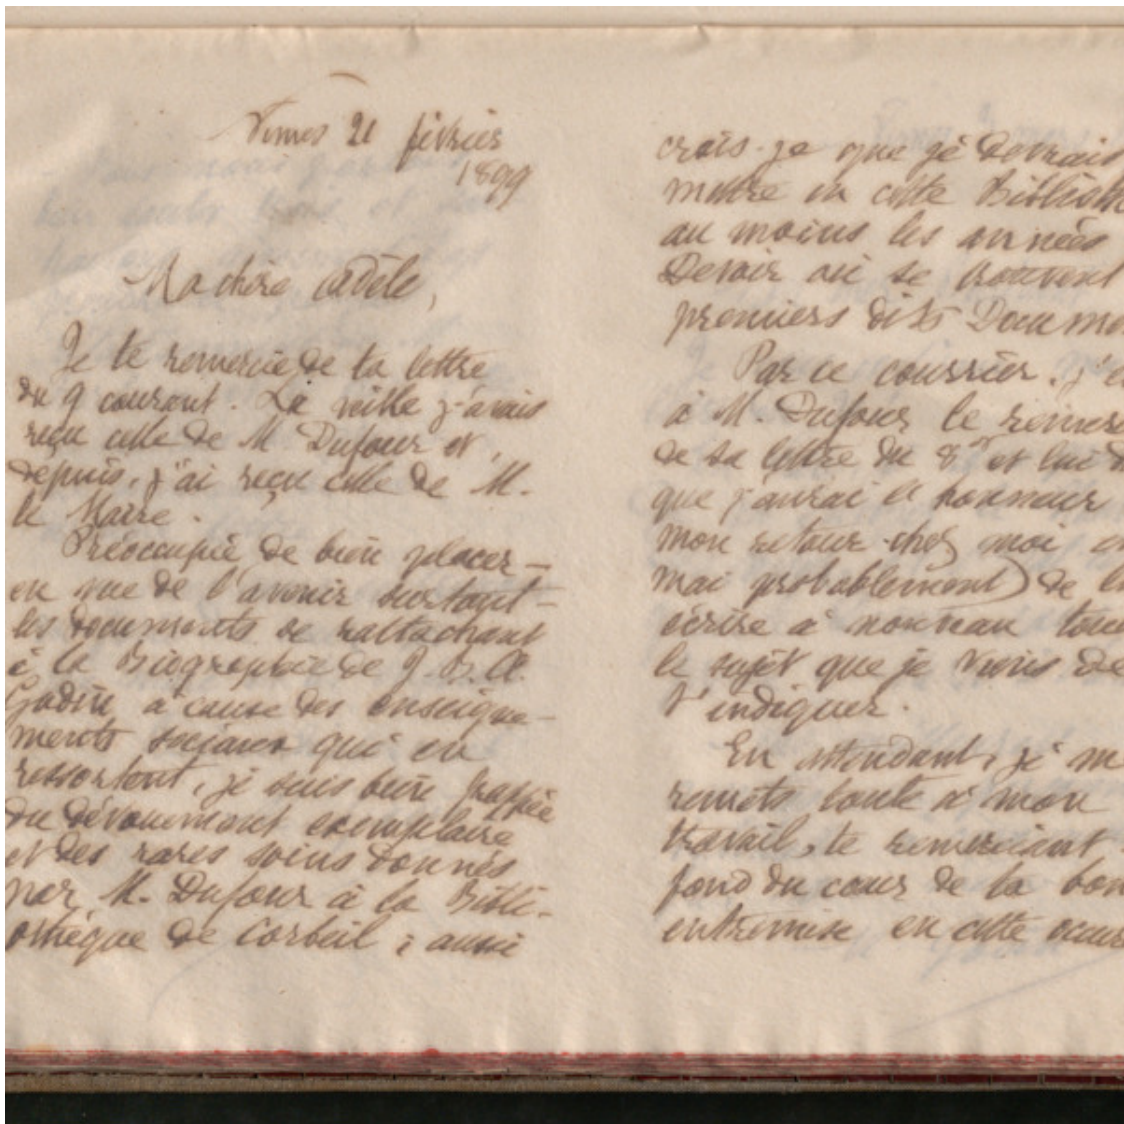 Nimes 21 février
1899
Ma chère Adèle,
Je te remercie de ta lettre
du 9 courant. La veille j'avais
reçu celle de M Dufour et,
depuis, j'ai reçu celle de M.
le Maire.
Préoccupée de bien placer –
en vue de l'avenir surtout –
les documents se rattachant
à la Biographie de J. B. A.
Godin, à cause des enseigne-
ments sociaux qui en
ressortent, je suis bien frappée
du dévouement exemplaire
et des rares soins donnés
par M. Dufour à la Bibli-
othèque de Corbeil ; aussi
crois-je que je devrais
mettre en cette Biblioth
au moins les années
Devoir où se trouvent
premiers dits Docume
Par ce courrier, j'é
à M. Dufour le remer
de sa lettre du 8 et lui d
que j'aurai l'honneur
mon retour chez moi en
mai probablement) de l
écrire à nouveau tou
le sujet que je viens de
t'indiquer.
En attendant, je m
remets toute à mon
travail, te remerciant
fond du cœur de ta bon
entremise en cette occur